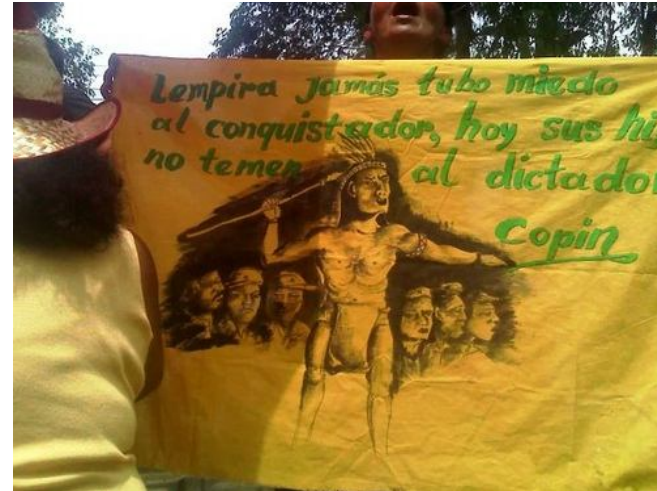 Lempira jamás tubo miedo
al conquistador, hoy sus hij
no temen al dictador
Copin